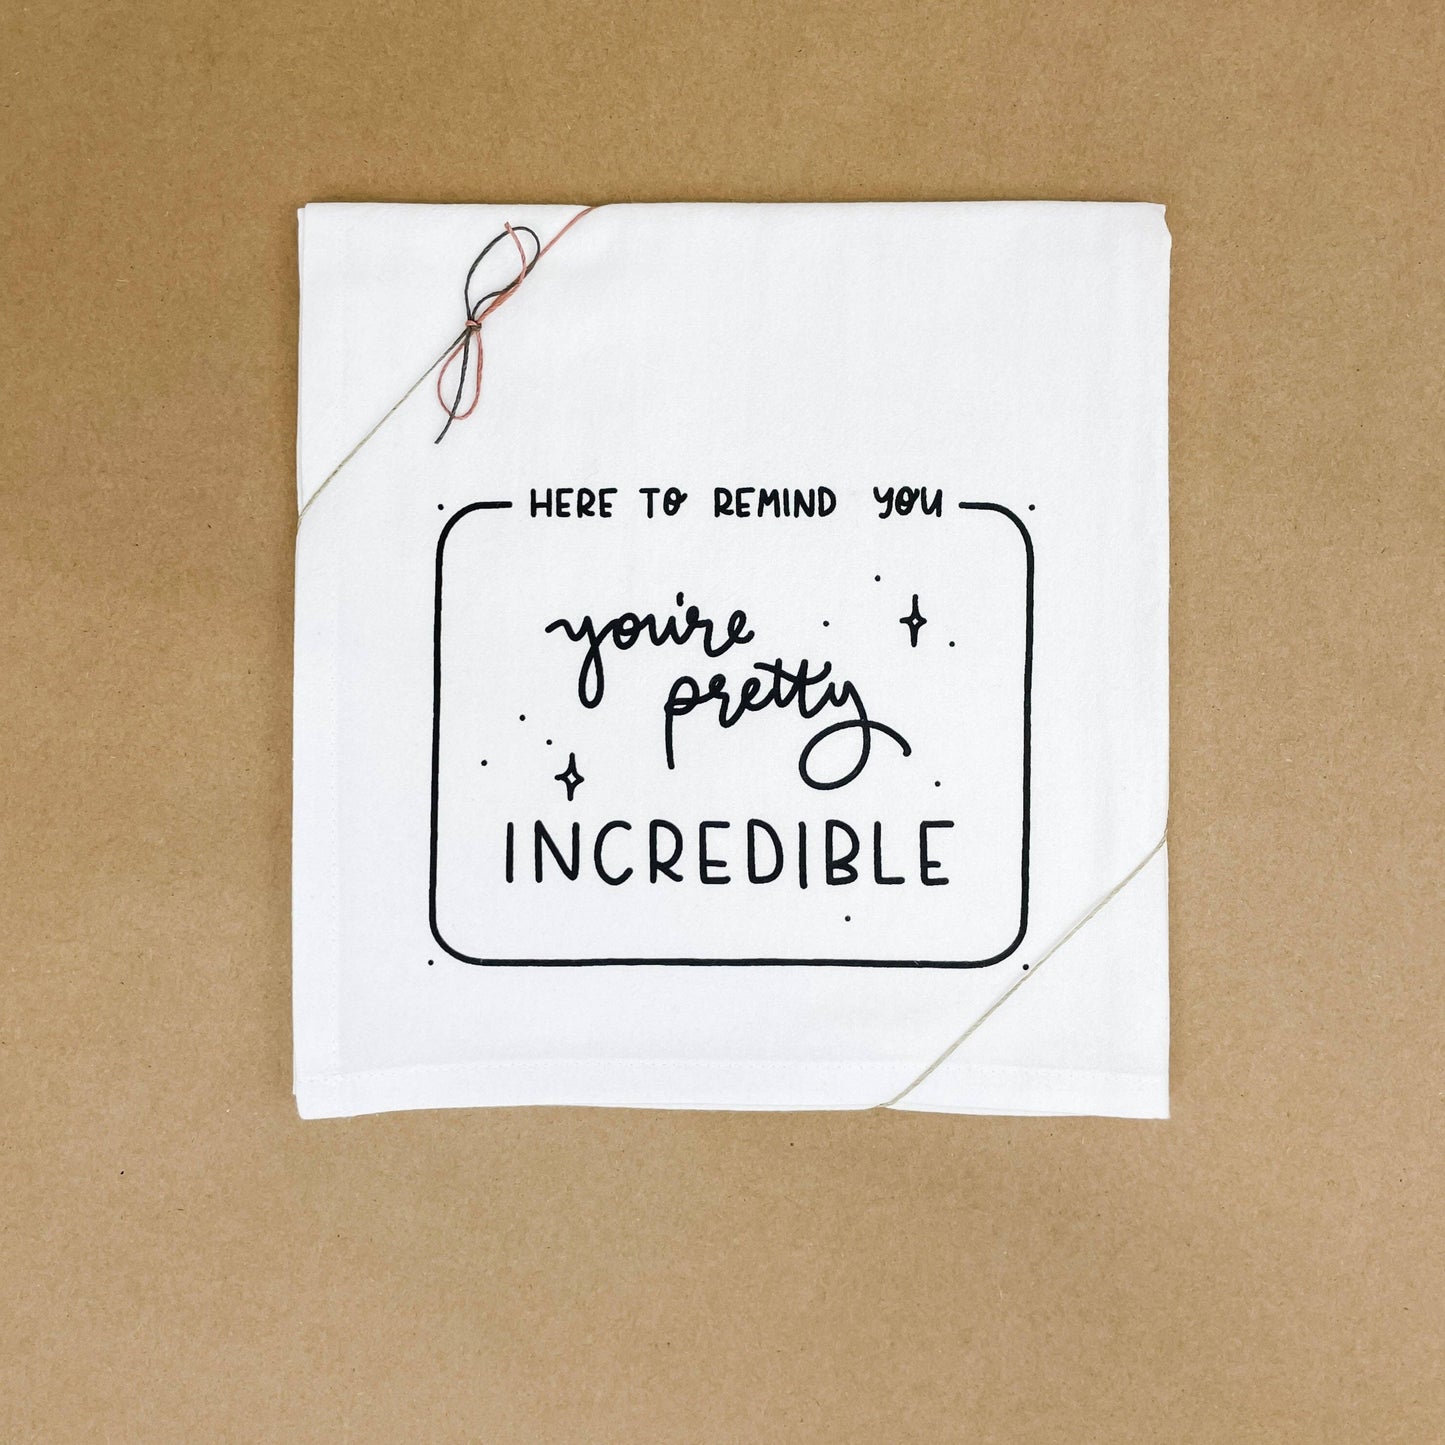 HERE TO REMIND YOU
you're
pretty
INCREDIBLE